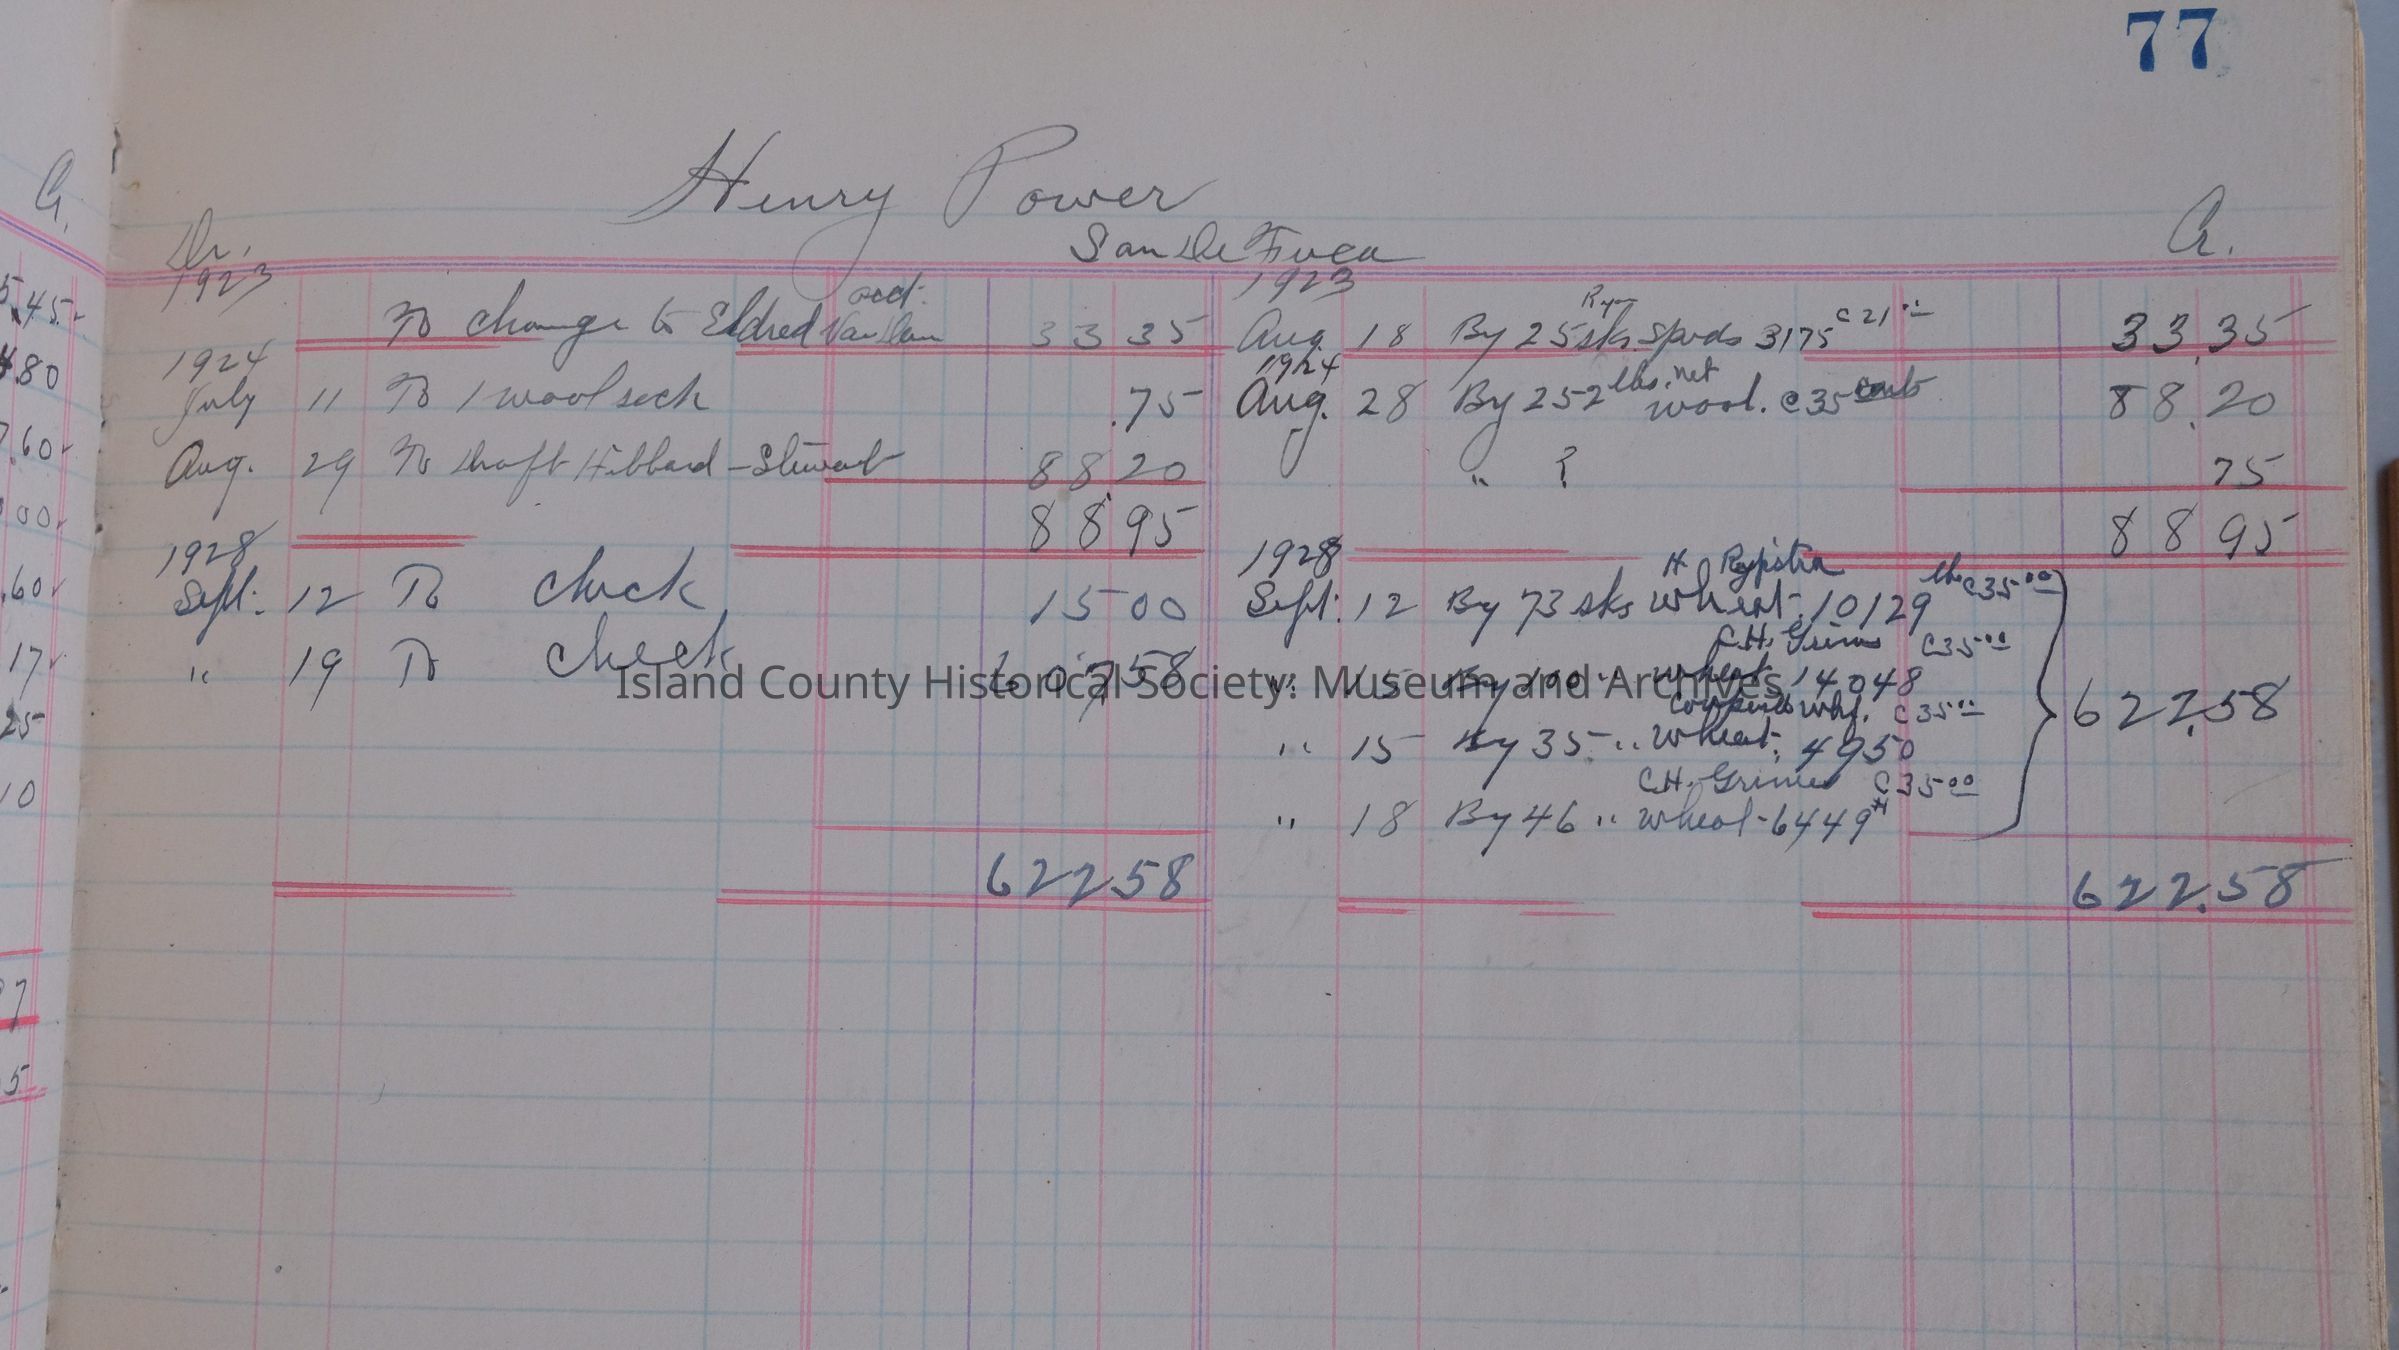 77
Henry Power
San De Fuca
Dr.
Cr.
1923
To change to Eldred Van Dam acct. 33 35
1924
July 11 To 1 wool sack .75
Aug. 29 To Draft Hibbard-Stewart 88 20
88 95
1928
Sept. 12 To check 15 00
" 19 To check 607 58
622 58
1923
Aug. 18 By 25 sks spuds 3175 @ 21.00 33.35
1924
Aug. 28 By 252 lbs. net wool. @ 35 cents 88.20
" ? 75
88 95
1928
H. Rypstra
Sept. 12 By 73 sks wheat. 10129 lbs @ 35.00
C.H. Grimes @ 35.00
" 15 By 100 " wheat 14048
Coupeville whf. @ 35.00
" 15 By 35 " wheat. 4950
C.H. Grimes @ 35.00
" 18 By 46 " wheat - 6449 #
622.58
622.58
Cr.
5.45
.80
.60
00
.60
17
25
10
7
5
Island County Historical Society: Museum and Archives